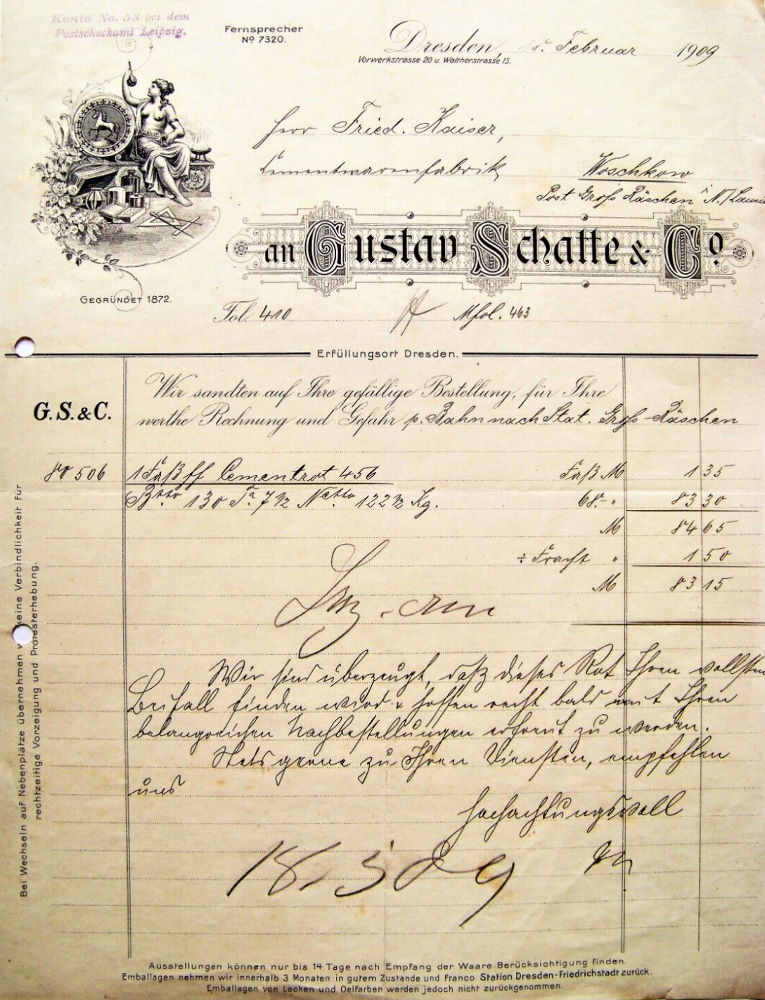 Konto No. 53 bei dem
Postscheckamt Leipzig.
Fernsprecher
No 7320.
Dresden, Februar 1909
Vorwerkstrasse 20 u. Waltherstrasse 15.
Herr Fried. Kaiser,
Cementwarenfabrik, Woschkow
Post Gross Räschen i. N./Lausitz
an Gustav Schatte & Co.
Gegründet 1872.
Fol. 410 Mfol. 463
Erfüllungsort Dresden.
G.S.&C.
Wir sandten auf Ihre gefällige Bestellung, für Ihre
werthe Rechnung und Gefahr p. Bahn nach Stat. Gross-Räschen
506 1 Faß ff Cementrot 456 Faß M 1 35
Btto 130 Ta 7 1/2 Netto 122 1/2 Kg. 68.- " 83 30
M 84 65
÷ Fracht " 1 50
M 83 15
Wir sind überzeugt, daß dieses Rot Ihren vollsten
Beifall finden wird & hoffen recht bald mit Ihren
belangreichen Nachbestellungen erfreut zu werden.
Stets gerne zu Ihren Diensten, empfehlen
uns
Hochachtungsvoll
18.3 09
Bei Wechseln auf Nebenplätze übernehmen wir keine Verbindlichkeit für
rechtzeitige Vorzeigung und Protesterhebung.
Ausstellungen können nur bis 14 Tage nach Empfang der Waare Berücksichtigung finden.
Emballagen nehmen wir innerhalb 3 Monaten in gutem Zustande und franco Station Dresden-Friedrichstadt zurück.
Emballagen von Lacken und Oelfarben werden jedoch nicht zurückgenommen.